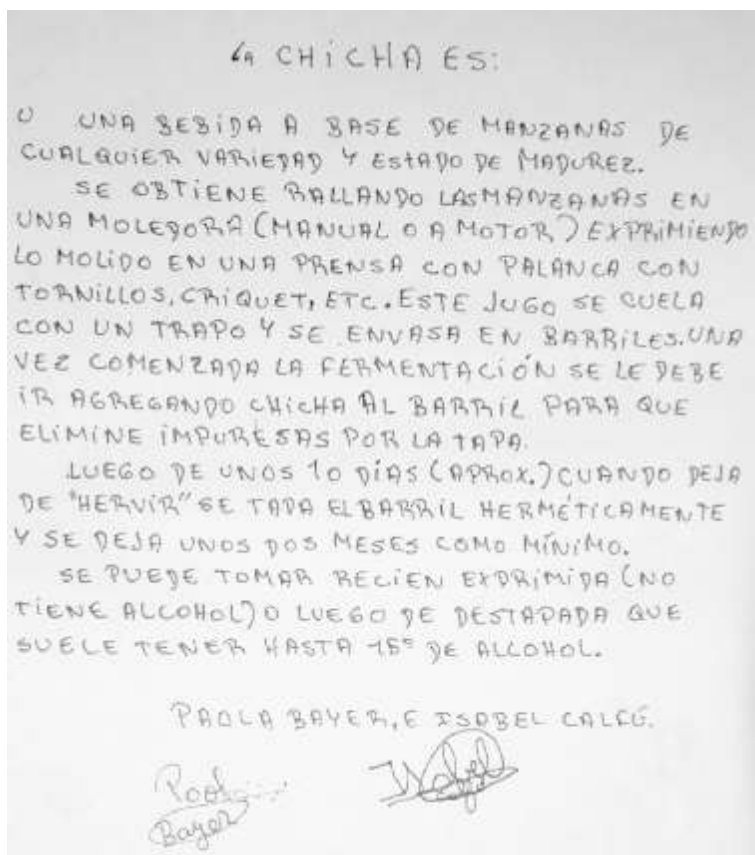 La CHICHA ES:
UNA BEBIDA A BASE DE MANZANAS DE
CUALQUIER VARIEDAD Y ESTADO DE MADUREZ.
SE OBTIENE RALLANDO LAS MANZANAS EN
UNA MOLEDORA (MANUAL O A MOTOR) EXPRIMIENDO
LO MOLIDO EN UNA PRENSA CON PALANCA CON
TORNILLOS, CRIQUET, ETC. ESTE JUGO SE CUELA
CON UN TRAPO Y SE ENVASA EN BARRILES. UNA
VEZ COMENZADA LA FERMENTACIÓN SE LE DEBE
IR AGREGANDO CHICHA AL BARRIL PARA QUE
ELIMINE IMPURESAS POR LA TAPA.
LUEGO DE UNOS 10 DÍAS (APROX.) CUANDO DEJA
DE "HERVIR" SE TAPA EL BARRIL HERMÉTICAMENTE
Y SE DEJA UNOS DOS MESES COMO MÍNIMO.
SE PUEDE TOMAR RECIEN EXPRIMIDA (NO
TIENE ALCOHOL) O LUEGO DE DESTAPADA QUE
SUELE TENER HASTA 15° DE ALCOHOL.
PAOLA BAYER, E ISABEL CALFÚ.
Paola Isabel
Bayer